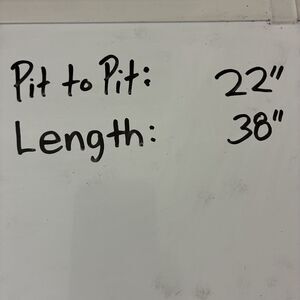 Pit to Pit: 22"
Length: 38"